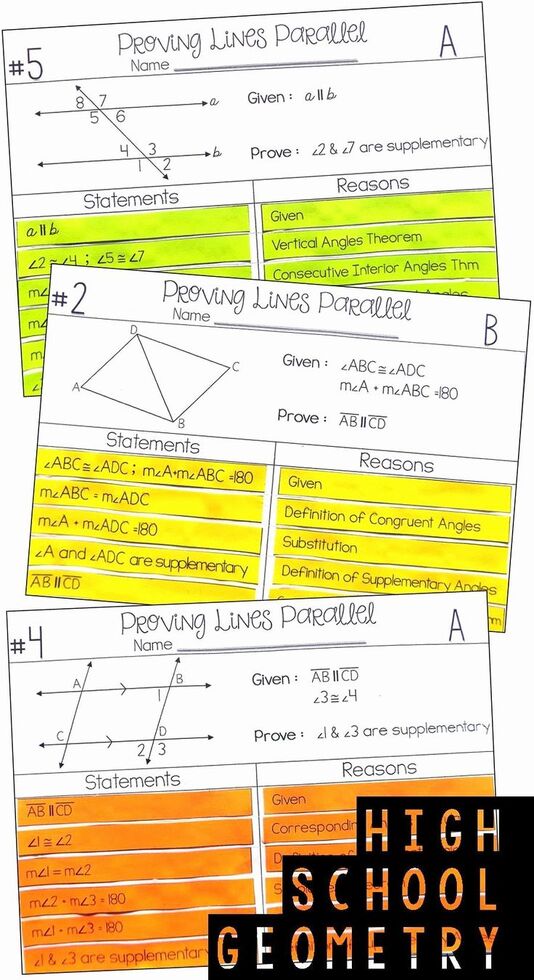 #5
Proving Lines Parallel
A
Name
8 7
5 6
a
4 3
1 2
b
Given : a ∥ b
Prove : ∠2 & ∠7 are supplementary
Statements
Reasons
a ∥ b
Given
∠2 ≅ ∠4 ; ∠5 ≅ ∠7
Vertical Angles Theorem
Consecutive Interior Angles Thm
m∠
m∠
m
∠
Angles
#2
Proving Lines Parallel
B
Name
D
C
A
B
Given : ∠ABC ≅ ∠ADC
m∠A + m∠ABC =180
Prove : AB ∥ CD
Statements
Reasons
∠ABC ≅ ∠ADC ; m∠A+m∠ABC =180
Given
m∠ABC = m∠ADC
Definition of Congruent Angles
m∠A + m∠ADC =180
Substitution
∠A and ∠ADC are supplementary
Definition of Supplementary Angles
AB ∥ CD
#4
Proving Lines Parallel
A
Name
A
B
1
C
D
2 3
Given : AB ∥ CD
∠3 ≅ ∠4
Prove : ∠1 & ∠3 are supplementary
Statements
Reasons
AB ∥ CD
Given
∠1 ≅ ∠2
m∠1 = m∠2
m∠2 + m∠3 = 180
m∠1 + m∠3 = 180
∠1 & ∠3 are supplementary
HIGH
SCHOOL
GEOMETRY